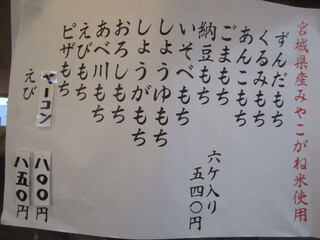 宮城県産みやこがね米使用
ずんだもち
くるみもち
あんこもち
ごまもち
納豆もち
いそべもち
しょうゆもち
しょうがもち
おろしもち
あべ川もち
えびもち
ピザもち
六ケ入り
五四〇円
ベーコン 八〇〇円
えび 八五〇円